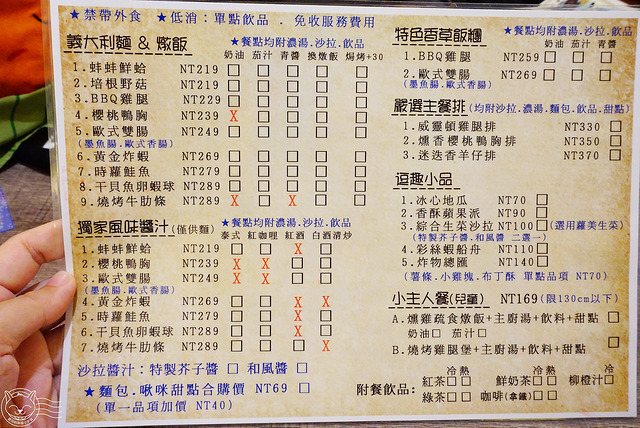 ★禁帶外食 ★低消：單點飲品．免收服務費用
義大利麵 & 燉飯 ★餐點均附濃湯.沙拉.飲品
奶油 茄汁 青醬 換燉飯 焗烤+30
1.蚌蚌鮮蛤 NT219 □ □ □ □ □
2.培根野菇 NT219 □ □ □ □ □
3.BBQ雞腿 NT229 □ □ □ □ □
4.櫻桃鴨胸 NT239 X □ □ □ □
5.歐式雙腸 NT249 □ □ □ □ □
(墨魚腸.歐式香腸)
6.黃金炸蝦 NT269 □ □ □ □ □
7.時蘿鮭魚 NT279 □ □ □ □ □
8.干貝魚卵蝦球 NT289 □ □ □ □ □
9.燒烤牛肋條 NT289 X □ X □ □
獨家風味醬汁(僅供麵) ★餐點均附濃湯.沙拉.飲品
泰式 紅咖哩 紅酒 白酒清炒
1.蚌蚌鮮蛤 NT219 □ □ X □
2.櫻桃鴨胸 NT239 X X □ □
3.歐式雙腸 NT249 X X □ □
(墨魚腸.歐式香腸)
4.黃金炸蝦 NT269 □ □ X X
5.時蘿鮭魚 NT279 □ □ X □
6.干貝魚卵蝦球 NT289 □ □ X □
7.燒烤牛肋條 NT289 □ □ □ X
沙拉醬汁：特製芥子醬 □ 和風醬 □
★麵包.啾咪甜點合購價 NT69 □
(單一品項加價 NT40)
特色香草飯糰 ★餐點均附濃湯.沙拉.飲品
奶油 茄汁 青醬
1.BBQ雞腿 NT259 □ □ □
2.歐式雙腸 NT269 □ □ □
(墨魚腸.歐式香腸)
嚴選主餐排(均附沙拉.濃湯.麵包.飲品.甜點)
1.威靈頓雞腿排 NT330 □
2.燻香櫻桃鴨胸排 NT350 □
3.迷迭香羊仔排 NT370 □
逗趣小品
1.冰心地瓜 NT70 □
2.香酥蘋果派 NT90 □
3.綜合生菜沙拉 NT100 □(選用蘿美生菜)
(特製芥子醬.和風醬 二選一)
4.彩絲蝦船舟 NT110 □
5.炸物總匯 NT140 □
(薯條.小雞塊.布丁酥 單點品項 NT70)
小主人餐(兒童) NT169(限130cm以下)
A.燻雞疏食燉飯+主廚湯+飲料+甜點 □
奶油□ 茄汁□
B.燒烤雞腿堡+主廚湯+飲料+甜點 □
冷 熱 冷 熱 冷
附餐飲品： 紅茶□□ 鮮奶茶□□ 柳橙汁□
綠茶□□ 咖啡(拿鐵)□□